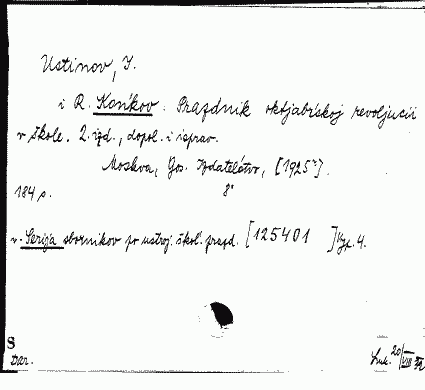 Ustinov, I.
i R. Końkov. Prazdnik oktjabŕskoj revoljucii
v škole. 2. izd., dopol. i isprav.
Moskva, Gos. Izdateĺstvo, [1925?].
8°
184 s.
v. Serija sbornikov po ustroj. škol. prazd. [125401] Vyp. 4.
S
Dar.
20/VIII